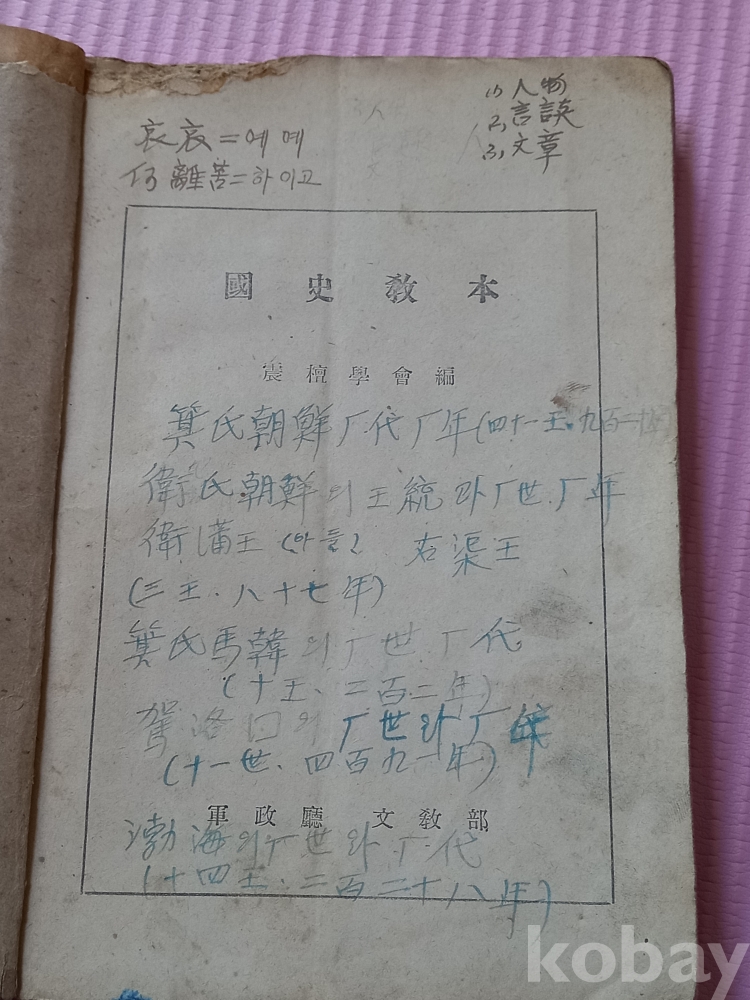 哀哀=예예
何離苦=하이고
(1) 人物
(2) 言談
(3) 文章
國史敎本
震檀學會編
箕氏朝鮮 厂代厂年(四十一王.九百二十
衛氏朝鮮의 王統과 厂世.厂年
衛滿王 (아들) 右渠王
(三王.八十七年)
箕氏馬韓의 厂世厂代
(十王、二百二年)
駕洛囗의 厂世와 厂年
(十一世、四百九一年)
軍政廳 文敎部
渤海의 厂世와 厂.代
(十四王、二百二十八年)
kobay